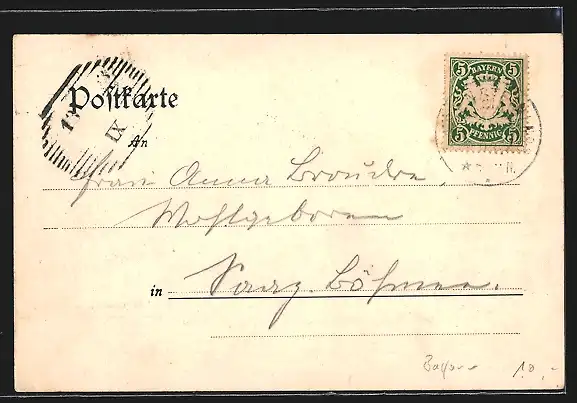 Postkarte
An
Frau Anna
Wohlgeboren
in Saaz. Böhmen.
5 BAYERN 5
5 PFENNIG 5
IX
10,-